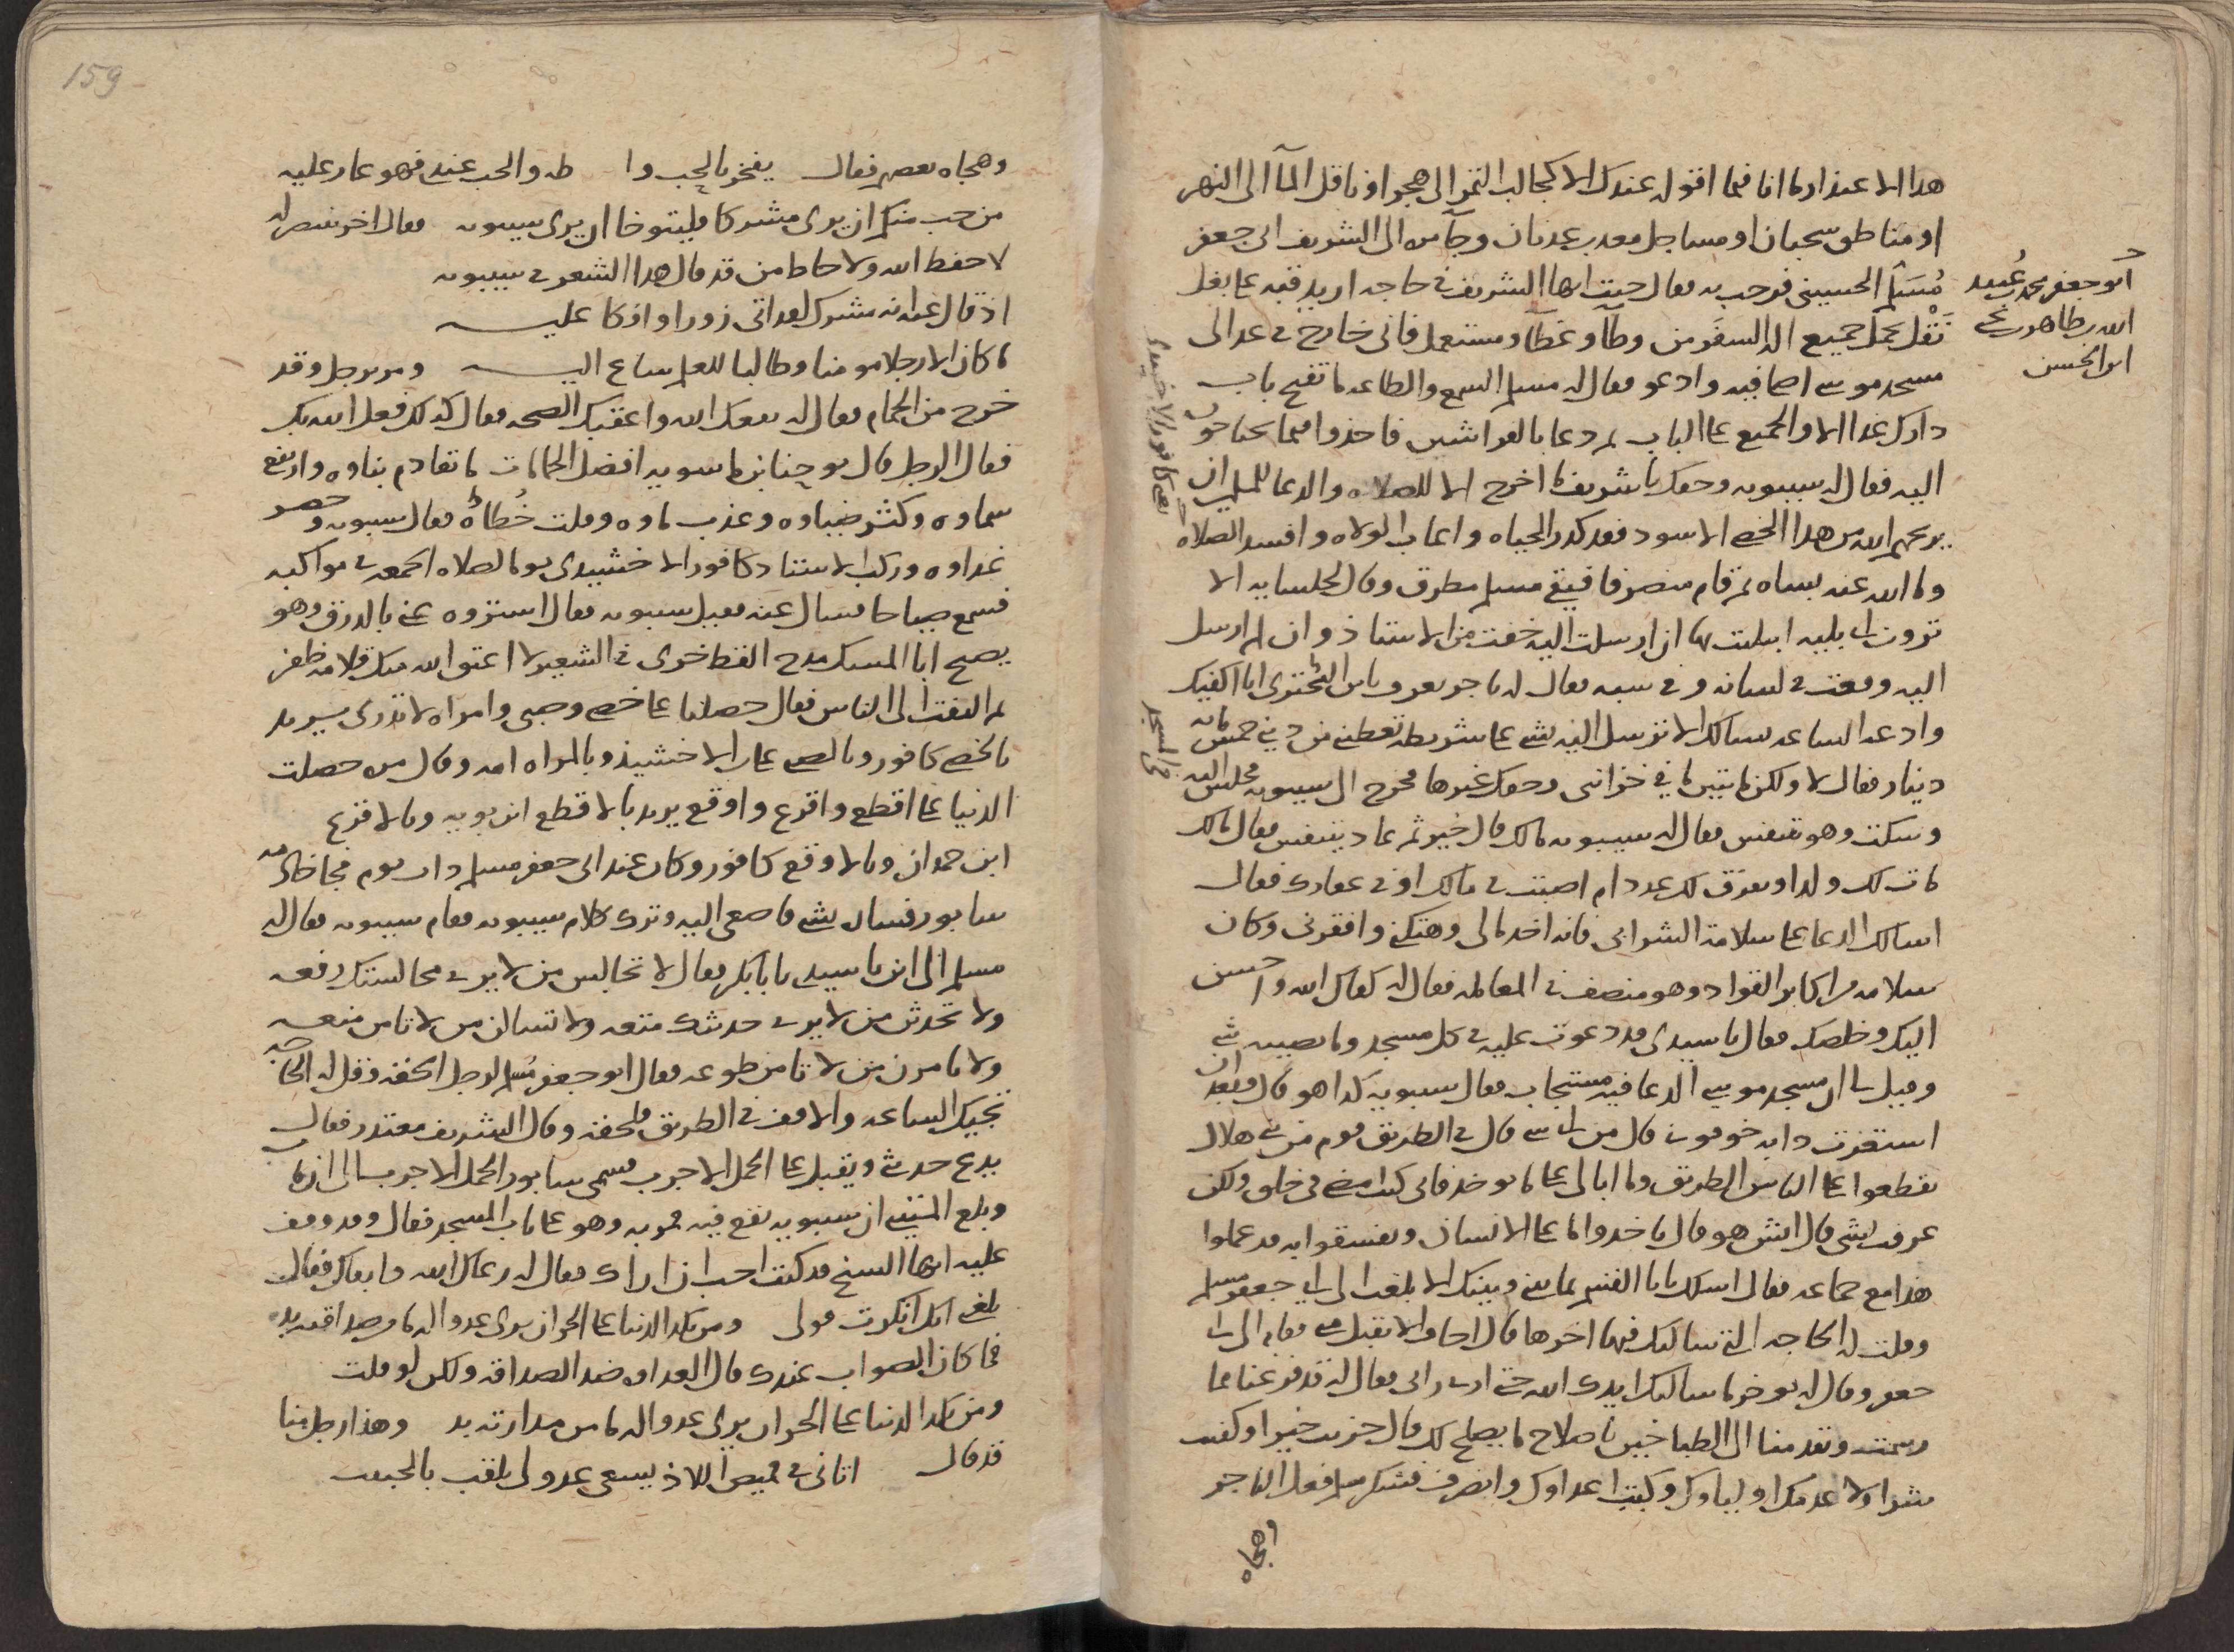 هدا الاعتذار لما انا فيما اقوله عندك الا كجالب التمر الى هجر او ناقل المآ الى النهر
او مناطق سحبان او مساجل معد بن عدنان وجآ مره الى الشريف ابى جعفر
مُسَلم الحسينى فرحب به فقال جيت ايها الشريف فى حاجه اريد فيه عما بغل
ابو جعفر محمد بن عُبيد
الله بن طاهر بن يحيى
ابن الحسن
نَقْل يحمل جميع اله السفَر من وطآ وغطآ ومستعمل فانى خارج فى غد الى
مسجد موسى اصلى فيه وادعو فقال له مسلم السمع والطاعه ما تفتح باب
دارك غدا الا والجميع على الباب ثم دعا بالفراشين فاخذوا فيما يحتاجون
اليه فقال له سيبويه وحقك يا شريف ما اخرج الا للصلاه والدعا للمسلمين ان
يعنى كافور الاخشيدى
يريحهم الله من هدا الخصى الاسود فقد كدر الحياه واعاب الولاه وافسد الصلاه
وما الله عنه بساه ثم قام منصرفا فبقى مسلم مطرق وقال لجلسايه الا
ترون الى بليه ابليت بها ان ارسلت اليه خفت من الاستاذ وان لم ارسل
اليه وقعت فى لسانه وفى سبه فقال له تاجر يعرف بابن البُختري انا اكفيك
وادعه الساعه يسالك الا ترسل اليه بشى على شريطه تعطينى من دينى خمس مايه
دينار فقال لا ولكن مايتين ما فى خزانتى وحقك غيرها فخرج الى سيبويه فجلس اليه
فى المسجد
وسكت وهو يتنفس فقال له سيبويه مالك قال خير ثم عاد يتنفس فقال مالك
مات لك ولد او يغرق لك عدد ام اصبت فى مالك او فى عقارك فقال
اسالك الدعا على سلامة الشرابى فانه اخد مالى وهتكنى وافقرنى وكان
سلامه من اكابر القواد وهو منصف فى المعامله فقال له كفاك الله واحسن
اليك وخلصك فقال يا سيدى قد دعوت عليه فى كل مسجد وما يصيبه شى
وقيل لى ان مسجد موسى الدعا فيه مستجاب فقال سيبويه كدا هو قال فبعد ان
استفزت دابه خوفونى قال من اى شى قال فى الطريق قوم من بنى هلال
يقطعوا على الناس الطريق وما ابالى على ما يوخد فانى كنت امضى فى خلق ولكن
عرفت بشى قال ايش هو قال ياخدوا ما على الانسان ويفسقوا به قد عملوا
هذا مع جماعه فقال اسلك يا با القسم بما بينى وبينك الا بلغت الى ابى جعفر مسلم
وقلت له الحاجه التى سالتك فيها اخرها قال اخاف الا يقبل منى فقام الى ابى
جعفر وقال له يوخر ما سالتك ايدك الله حتى ارى رايى فقال له قد فرغنا مما
رسمت وتقدمنا الى الطباخين باصلاح ما يصلح لك قال جزيت خيرا وكفيت
شرا ولا عدمك اولياوك وكبت اعداوك وانصرف فشكر مسلم فعل التاجر
وهجاه
159
وهجاه بعضهم فقال يفخر بالجب وا طه والجب عندى فهو عار عليه
من حب منكم ان يرى مشركا فليتوخا ان يرى سيبويه فقال اخر ينتصر له
لا حفظ الله ولا حاط من قد قال هدا الشعر فى سيبويه
اذ قال عنه انه مشرك لقد اتى زورا وافكا عليـــه
ما كان الا رجلا مومنا وطالبا للعلم ساع اليـــه ومر برجل وقد
خرج من الحمام فقال له نفعك الله واعقبك الصحه فقال كدلك فعل الله بك
فقال الرجل قال يوحنا بن ماسويه افضل الحمامات ما تقادم بناوه وارتفع
سماوه وكثر ضياوه وعذب ماوه وقلت خُطاؤه فقال سيبويه وحضر
غداوه وركب الاستاد كافور الاخشيدى يوما لصلاه الجمعه فى مواكبه
فسمع صياحا فسال عنه فقيل سيبويه فقال استروه عنى بالدرق وهو
يصيح ابا المسك مدح القط خرى فى الشعير لا اعتق الله منك قلامه ظفر
ثم التفت الى الناس فقال حصلنا على خصى وصبى وامراه لا تدرى يريد
بالخصى كافور وبالصبى على بن الاخشيد وبالمراه امه وقال مره حصلت
الدنيا على اقطع واقرع واوقع يريد بالاقطع ابن بويه وبالاقرع
ابن حمدان وبالاوقع كافور وكان عند ابى جعفر مسلم دات يوم فجا خادمه
سابور فساره بشى فاصغى اليه وترك كلام سيبويه فقام سيبويه فقال له
مسلم الى اين يا سيدى يا بابكر فقال لا تجالس من لا يرى مجالستك رفعه
ولا تحدث من لا يرى حديثك متعه ولا تسالن من لا تامن منعه
ولا تامرن من لا تامن طوعه فقال ابو جعفر مُسلم لرجل الحقه وقل له الحاجه
تجيك الساعه والا وقف فى الطريق فلحقه وقال الشريف معتدر فقال
يدع حديثى ويقبل على الجمل الاجرب فسمى سابور الجمل الاجرب الى ان مات
وبلغ المتنبى ان سيبويه يقع فيه فمر به وهو على باب المسجد فقال وقد وقف
عليه ايها الشيخ قد كنت احب ان اراك فقال له رعاك الله وابقاك فقال
بلغنى انك انكرت قولى ومن نكد الدنيا على الحر ان يرى عدوا له ما من صداقته بد
فما كان الصواب عندك قال العداوه ضد الصداقه ولكن لو قلت
ومن نكد الدنيا على الحر ان يرى عدوا له ما من مداراته بد وهذا رجل منا
قد قال اتانى فى قميص اللاذ يسعى عدو لى يلقب بالحبيب